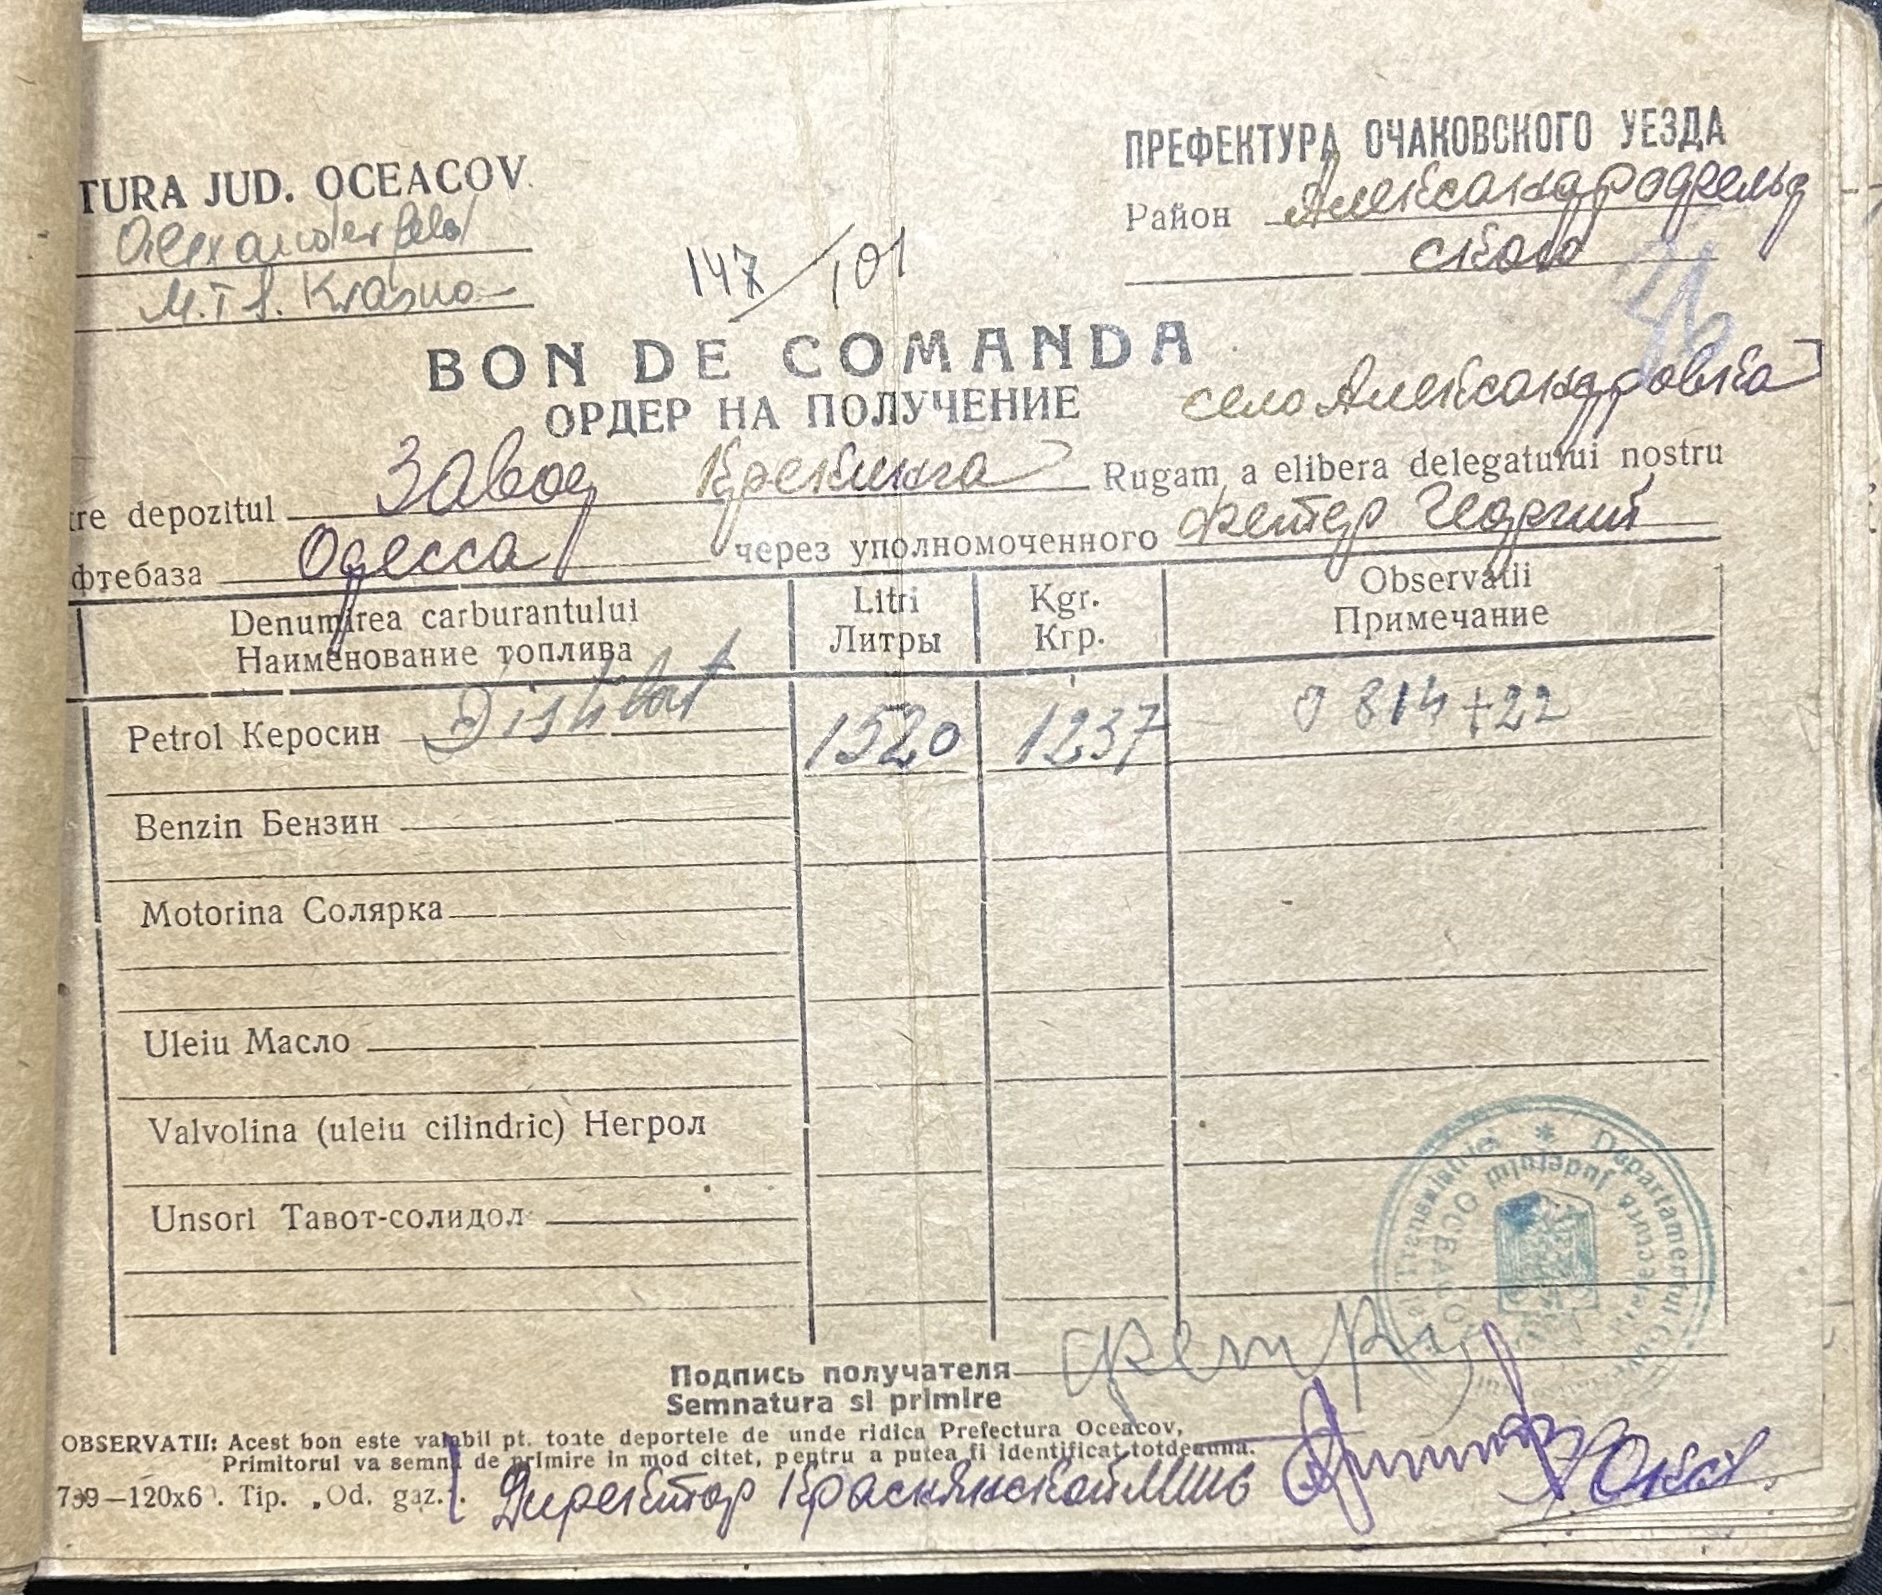 TURA JUD. OCEACOV.
Alexanderfeld
M.T.S. Krasno-
ПРЕФЕКТУРА ОЧАКОВСКОГО УЕЗДА
Район Александрофельд
ского
147/101
BON DE COMANDA
ОРДЕР НА ПОЛУЧЕНИЕ
село Александровка
tre depozitul Завод Крекинга Rugam a elibera delegatului nostru
фтебаза Одесса через уполномоченного Фетер Георгий
Denumirea carburantului Litri Kgr. Observatii
Наименование топлива Литры Кгр. Примечание
Petrol Керосин Distilat 1520 1237 0 814+22
Benzin Бензин
Motorina Солярка
Uleiu Масло
Valvolina (uleiu cilindric) Негрол
Unsori Тавот-солидол
Departamentul Transnistria
Prefectura Judeţului
OCEACOV
Подпись получателя
Semnatura si primire
OBSERVATII: Acest bon este valabil pt. toate deportele de unde ridica Prefectura Oceacov,
Primitorul va semna de primire in mod citet, pentru a putea fi identificat totdeauna.
Tip. „Od. gaz."
Директор Краснянской МТС